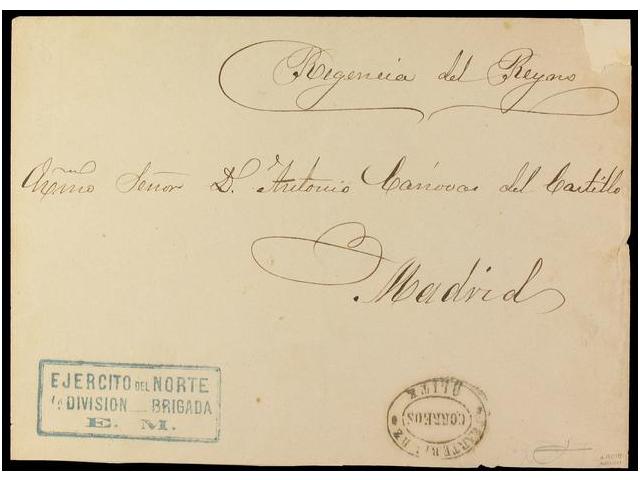 Regencia del Reyno
Exmo Señor D. Antonio Cánovas del Castillo
Madrid
EJERCITO DEL NORTE
1ª DIVISION BRIGADA
E. M.
CARTERIA DE
CORREOS
OLITE